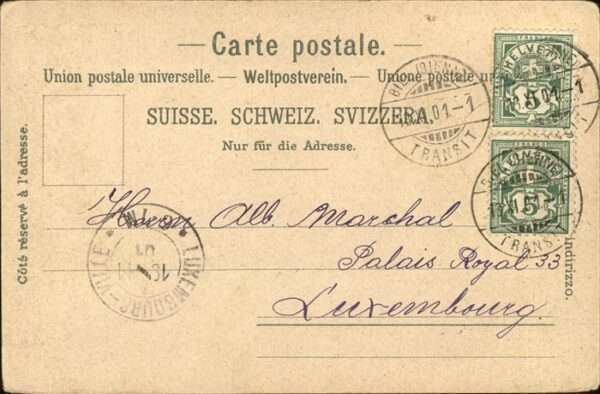 Carte postale.
Union postale universelle. — Weltpostverein. — Unione postale
SUISSE. SCHWEIZ. SVIZZERA.
Nur für die Adresse.
Côté réservé à l'adresse.
indirizzo.
HELVETIA
5
5
BIEL (BIENNE)
01.-1
TRANSIT
TRANSIT
LUXEMBOURG-VILLE
Herrn Alb. Marchal
Palais Royal 33
Luxembourg.